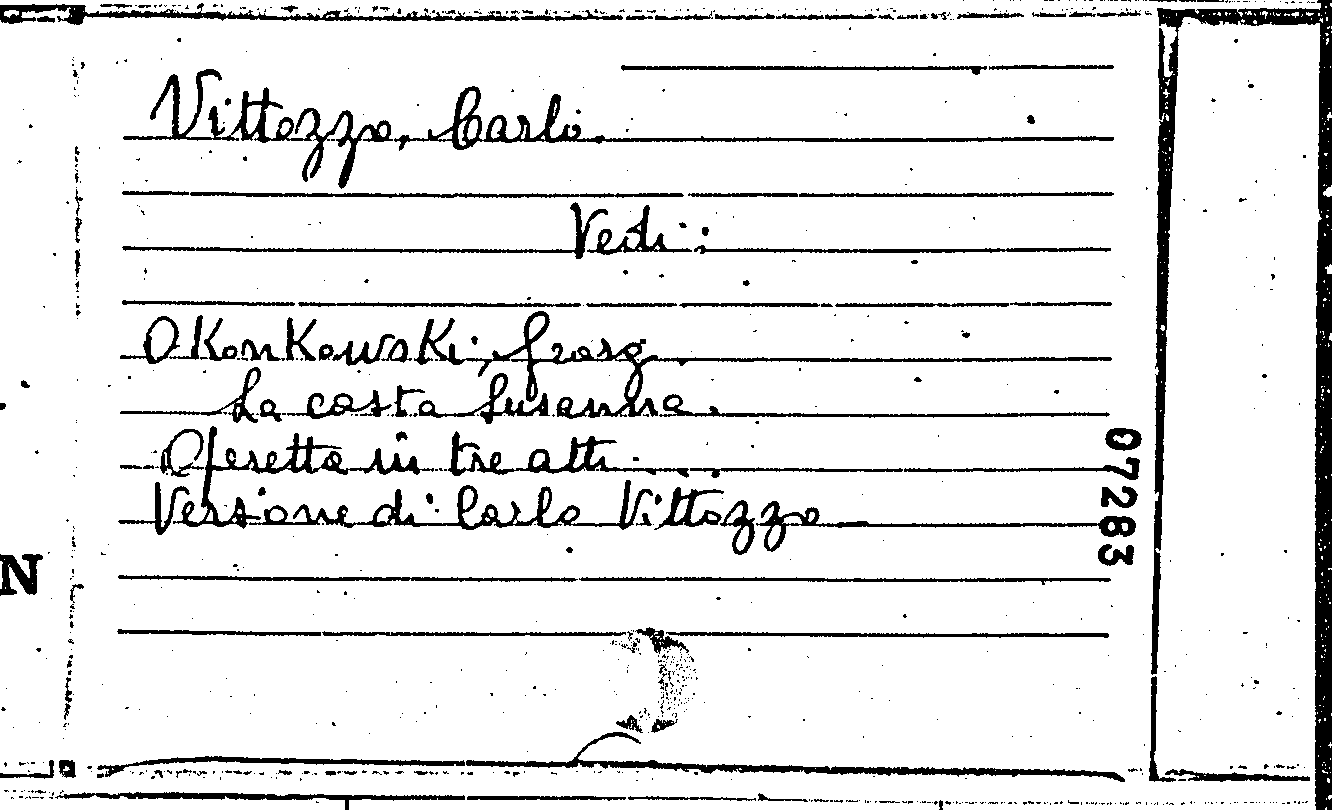 Vittozzo, Carlo.
Vedi:
Okonkowski, Georg.
La casta Susanna.
Operetta in tre atti ....
Versione di Carlo Vittozzo
07283
N